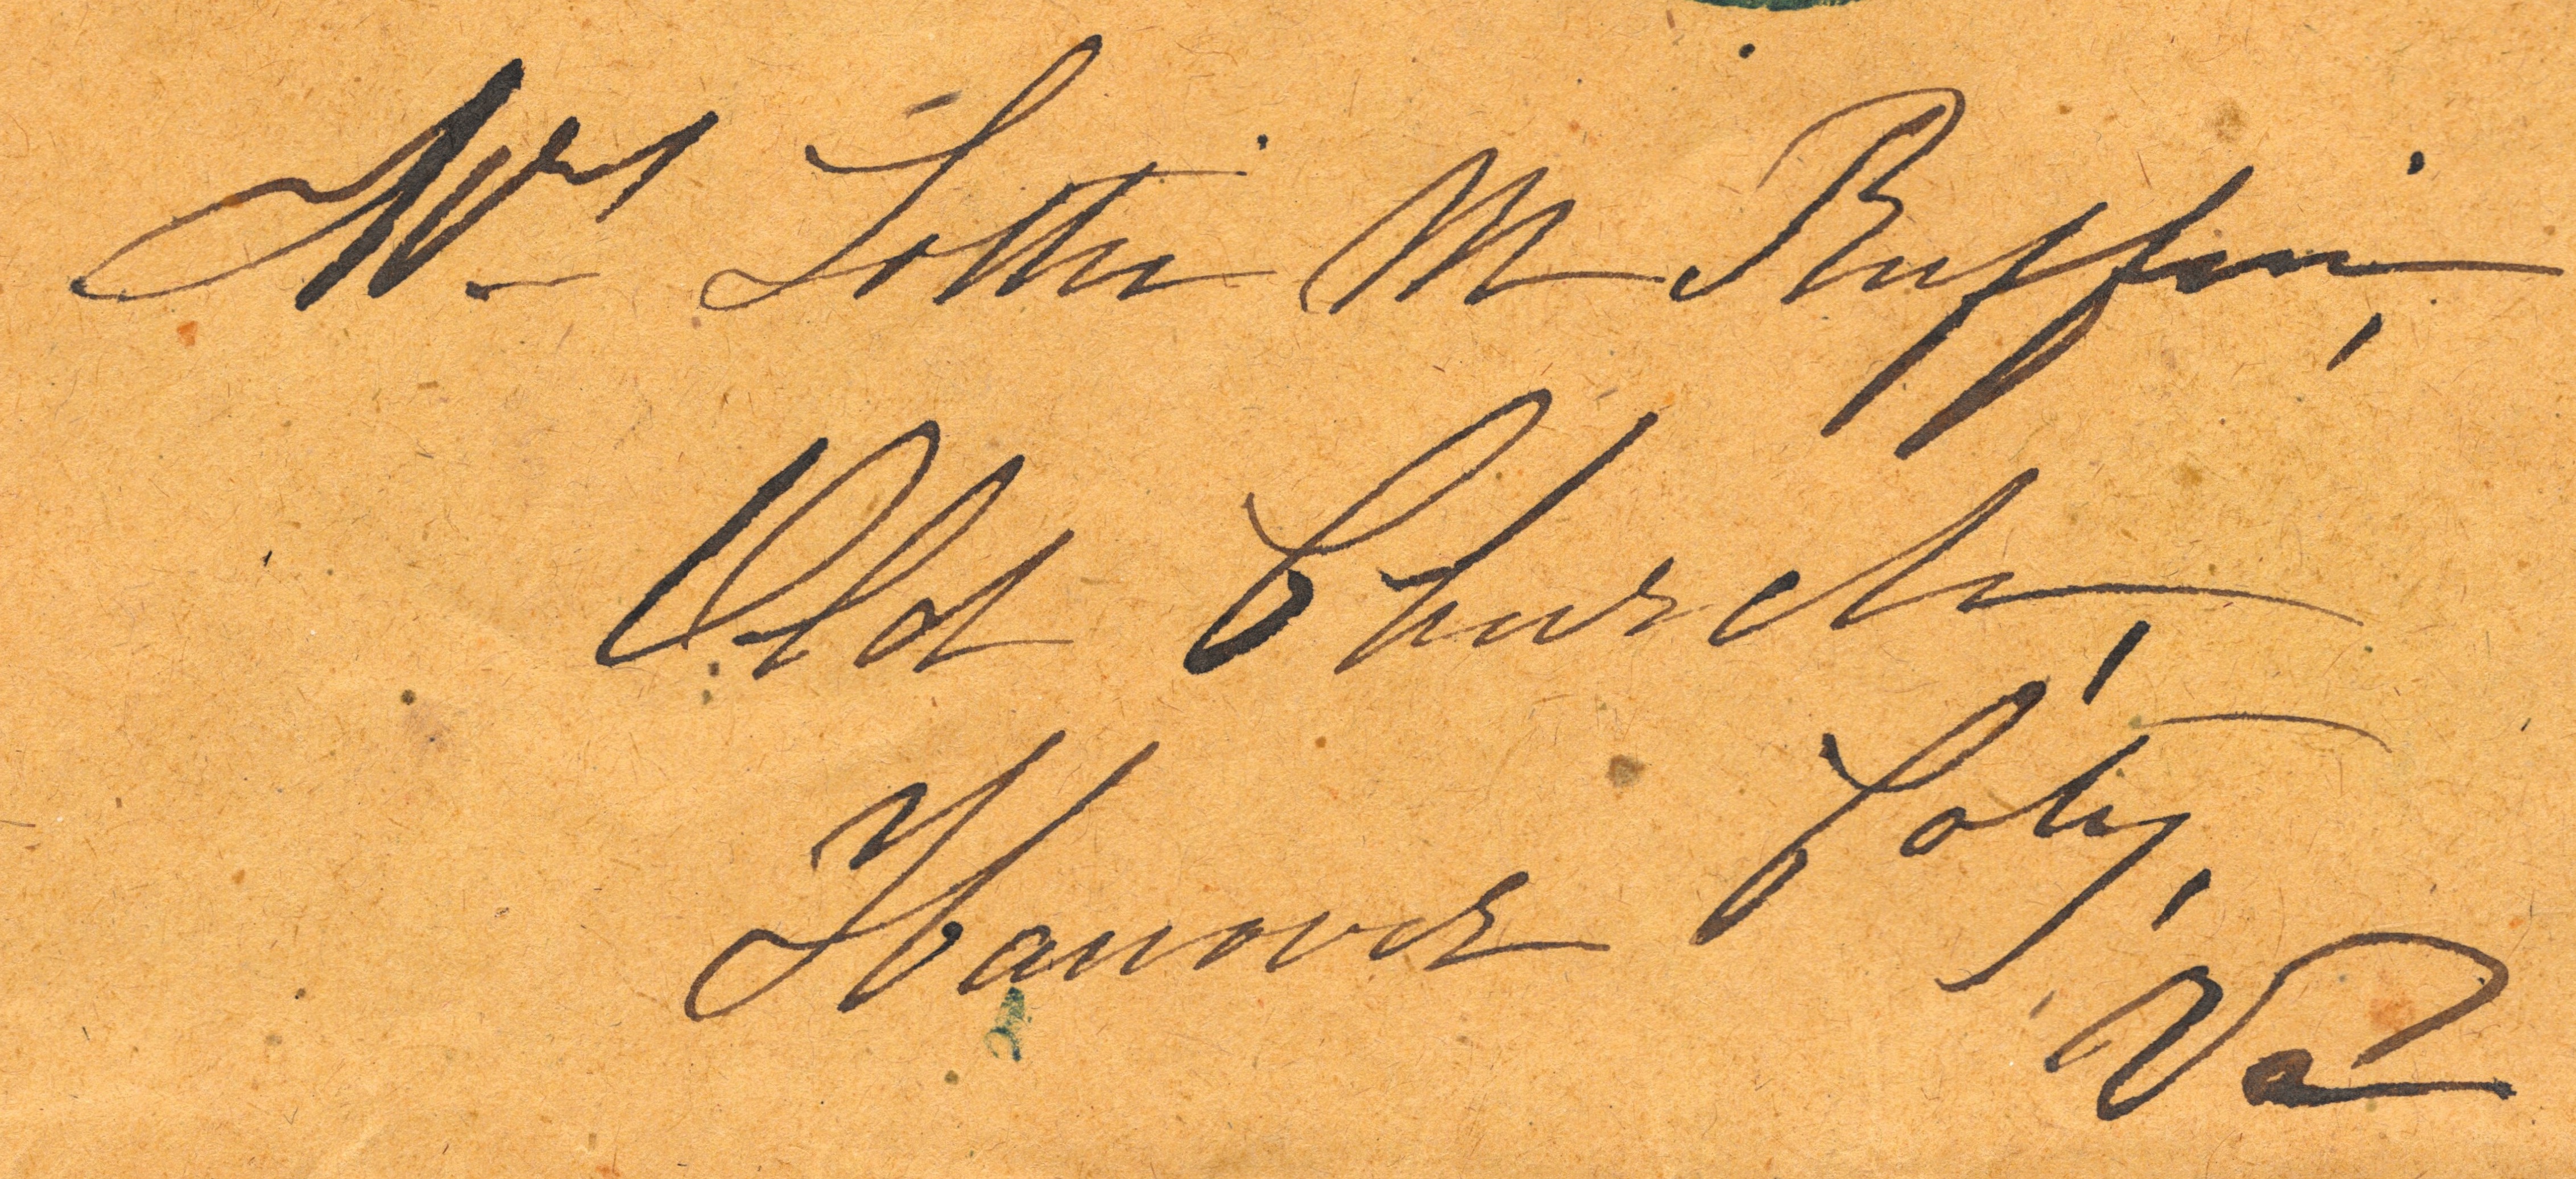 Mrs Lottie M Ruffin,
Old Church,
Hanover Coty,
Va